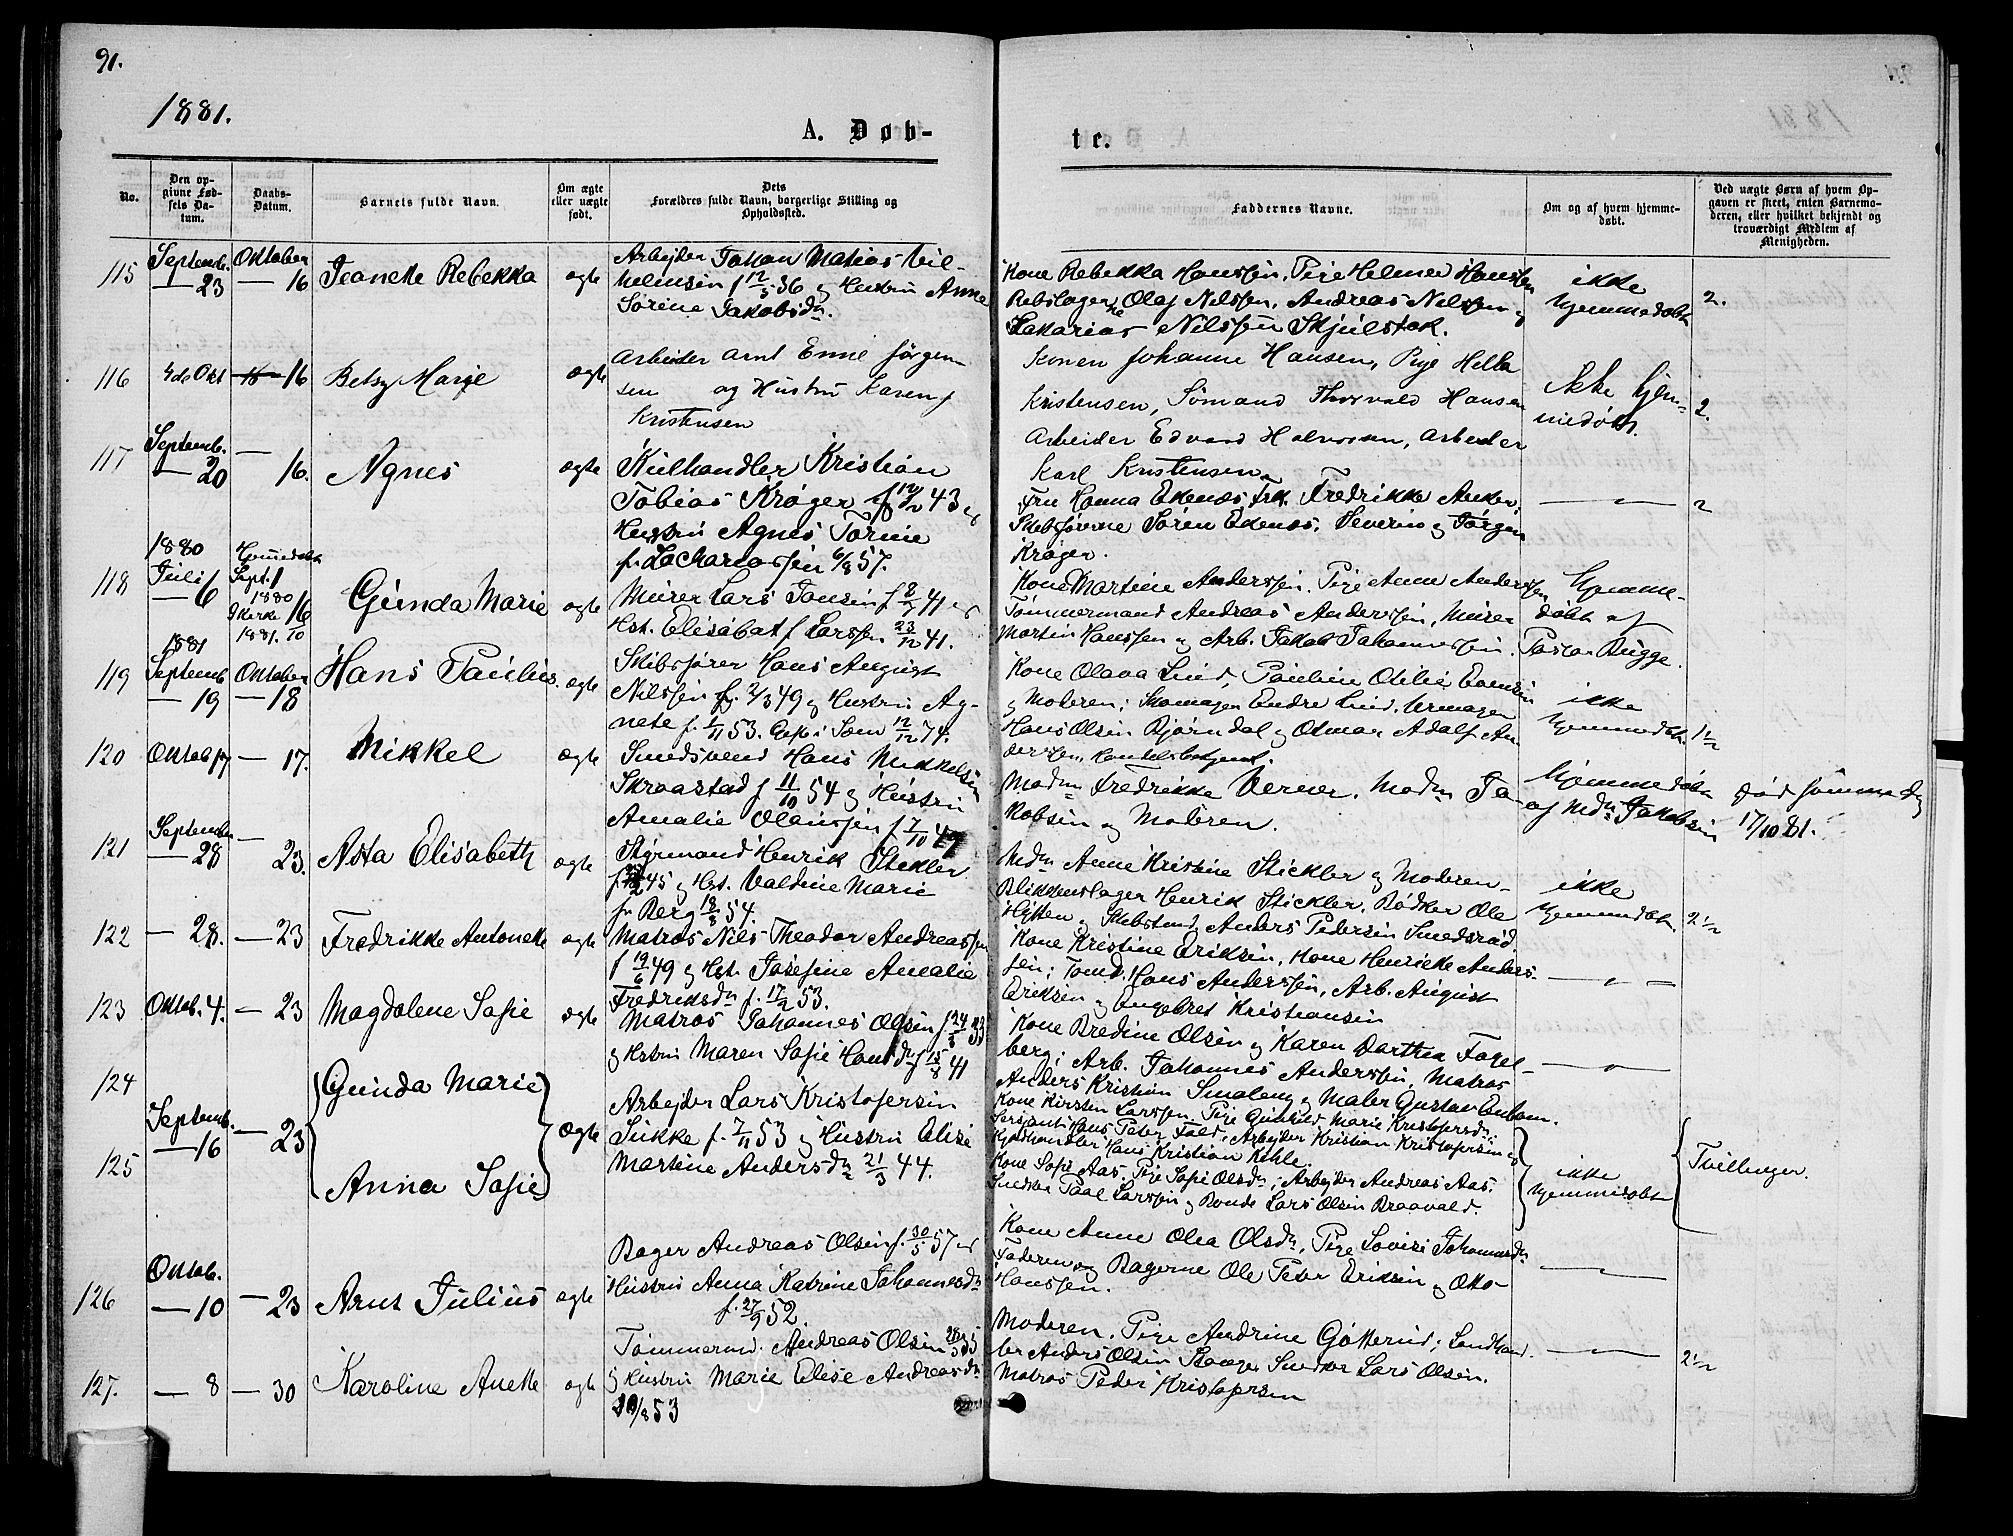 91.
1881.
A. Døb-
te.
No.
Den op-
givne Fød-
sels Da-
tum.
Daabs-
Datum.
Barnets fulde Navn.
Om ægte
eller uægte
født.
Dets
Forældres fulde Navn, borgerlige Stilling og
Opholdssted.
Faddernes Navne.
Om og af hvem hjemme-
døbt.
Ved uægte Børn af hvem Op-
gaven er skeet, enten Barnemo-
deren, eller hvilket bekjendt og
troværdigt Medlem af
Menigheden.
115 Septemb. 23 Oktober 16 Jeanette Rebekka ægte
Arbejder Johan Matias Vil-
helmsen f 12/3 36 og Hustru Anne
Sørine Jakobsdn.
Kone Rebekka Hanssen, Pige Helene Hanssen
Rebslagerne Olaf Nilssen, Andreas Nilssen og
Sakarias Nilssen Skjelstok.
ikke
hjemmedøbt
2.
116 4de Okt 16 Betsy Marie ægte
Arbeider Arnt Enne Jørgen
sen og Hustru Karen f
Kristensen
Konen Johanne Hansen, Pige Hella
Kristensen, Sømand Thorvald Hansen
Arbeider Edvard Halvorsen, Arbeider
Karl Kristensen
Ikke hjem-
medøbt.
2.
117 Septemb. 20 — 16. Agnes ægte
Kulhandler Kristian
Tobias Krøger f 12/2 43 og
Hustru Agnes Torine
f. Zachariassen 6/8 57.
Fru Hanna Ekenæs Frk. Fredrikke Anker,
Skibsførerne Søren Ekenæs, Severin og Jørgen
Krøger.
— " —
2
118 1880 Juli — 6 Hjemmedøbt Sept. 1 1880 I Kirke 16/10 1881. Gunda Marie ægte
Murer Lars Jensen f 8/7 41 og
Hst. Elisabat f Larssen 23/12 41.
Kone Martine Anderssen. Pige Anne Anderssen
Tømmermand Andreas Anderssen, Murer
Martin Hanssen og Arb. Jakob Johannessen.
Hjemme-
døbt af
Pastor Bugge.
119 1881 Septemb — 19 Oktober — 18 Hans Paulus. ægte
Skibsfører Hans August
Nilssen f. 2/8 49 og Hustru Ag-
nete f. 1/11 53. 12/12 74.
Kone Olava Lind, Pauline Otilie Evensen
og Moderen; Skomager Endre Lind, Urmager
Hans Olsen Bjørndal og Otmar Adolf An-
derssen, Handelsbetjent.
ikke
hjemmedøbt.
1 1/2
120 Oktob 17 — 17. Mikkel ægte
Smedsvend Hans Mikkelsen
Skraastad f 11/10 54 og Hustru
Amalie Olaussen f 7/10 47
Madm Fredrikke Verner. Madm Ja-
kobsen og Moderen.
Hjemmedøbt
af Mdm Jakobsen
Død samme Dag
17/10 81.
121 September — 28 — 23. Asta Elisabeth ægte
Styrmand Henrik Stekler
45 og Hst. Valdine Marie
f. Berg 18/8 54.
Mdm Anne Kristine Stickler og Moderen—
Blikkenslager Henrik Stickler. Bødker Ole
Hytten og Skibstmd Anders Pedersen Smedsrød
ikke
hjemmedøbt
2 1/2
122 — 28. — 23 Fredrikke Antonette ægte
Matros Nils Theodor Andreassen
f 19/6 49 og Hst. Josefine Amalie
Fredriksdn f. 17/2 53.
Kone Kristine Eriksen. Kone Henriette Anders-
sen; Tømd. Hans Anderssen, Arb. August
Eriksen og Engebret Kristiansen
— " —
123 Oktob. 4. — 23 Magdalene Sofie ægte
Matros Johannes Olsen f 24/3 33
og Hstru Maren Sofie Hansdn f 15/8 41
Kone Bredine Olsen og Karen Dorthea Fogel-
berg; Arb. Johannes Anderssen, Matros
Anders Kristian Smaleng og Maler Gustav Enbom.
— " —
124 Septemb. — 16 — 23 Gunda Marie
125 Anna Sofie
ægte
Arbejder Lars Kristofersen
Sukke f. 7/11 53 og Hustru Elise
Martine Andersdn 21/3 44.
Kone Kirsten Larssen, Pige Gunhild Marie Kristofersdn;
Sersjant Hans Peter Fald, Arbejder Kristian Kristofersen og
Hans Kristian Kihle.
Kone Sofie Aas. Pige Sofie Olsdn; Arbejder Andreas Aas.
Snedker Paal Larssen og Bonde Lars Olsen Braavald.
ikke
hjemmedøbt
Tvillinger.
126 Oktob. — 10 — 23 Arnt Julius ægte
Bager Andreas Olsen f. 30/5 57 og
Hustru Anna Katrine Johannesdn
f. 27/9 52.
Kone Anne Olea Olsdn, Pige Lovise Johannesdn
Faderen og Bagerne Ole Peter Eriksen og Otto
Hanssen.
— " —
127. — 8 — 30 Karoline Anette ægte
Tømmermd. Andreas Olsen 28/3 55
og Hustru Marie Elise Andreasdn
10/8 53
Moderen. Pige Andrine Gotterud; Landhand-
ler Anders Olsen Snedker Lars Olsen.
Matros Peder Kristofersen
— " —
2 1/2